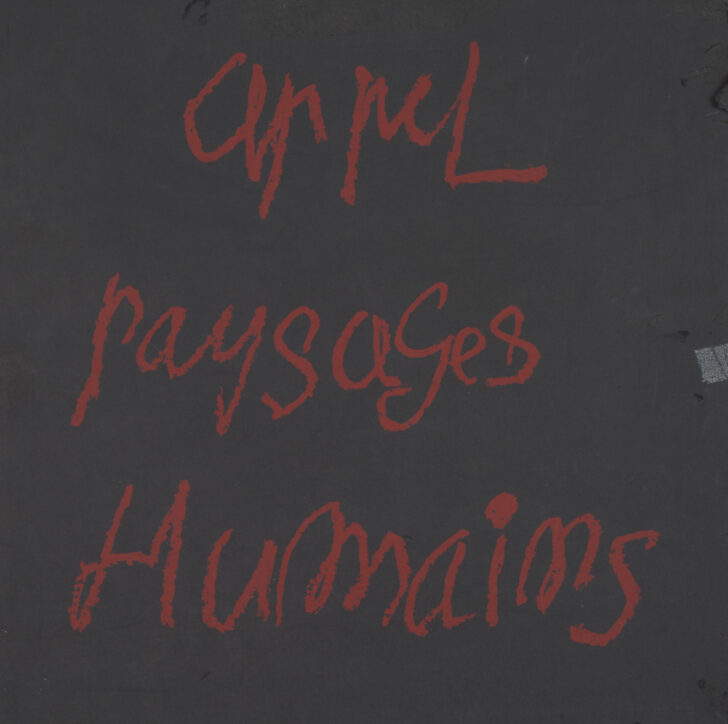 appel
paysages
Humains